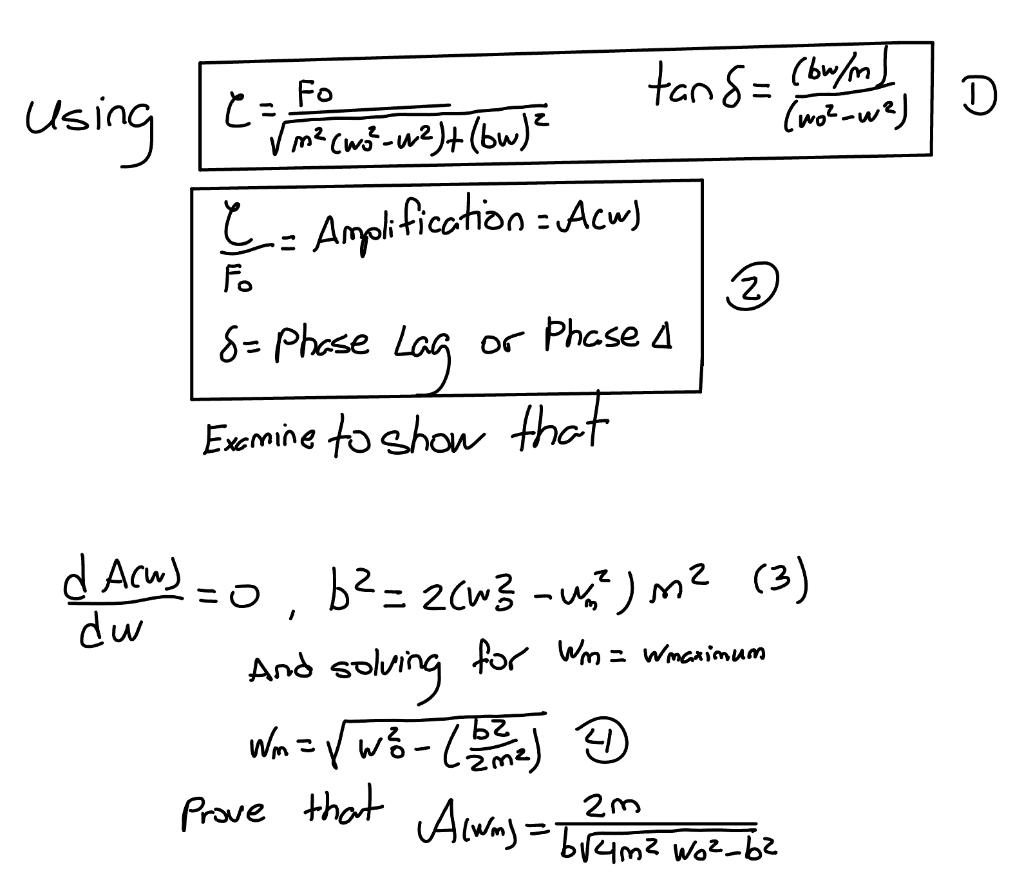 Using τ = F₀ / √(m² (w₀² - w²) + (bw)²) tan δ = (bw/m) / (w₀² - w²) ①
τ / F₀ = Amplification = A(w)
②
δ = Phase Lag or Phase Δ
Examine to show that
d A(w) / dw = 0 , b² = 2(w₀² - wₘ²) m² (3)
And solving for wₘ = wmaximum
wₘ = √(w₀² - (b² / 2m²)) ④
Prove that A(wₘ) = 2m / (b√(4m² w₀² - b²))